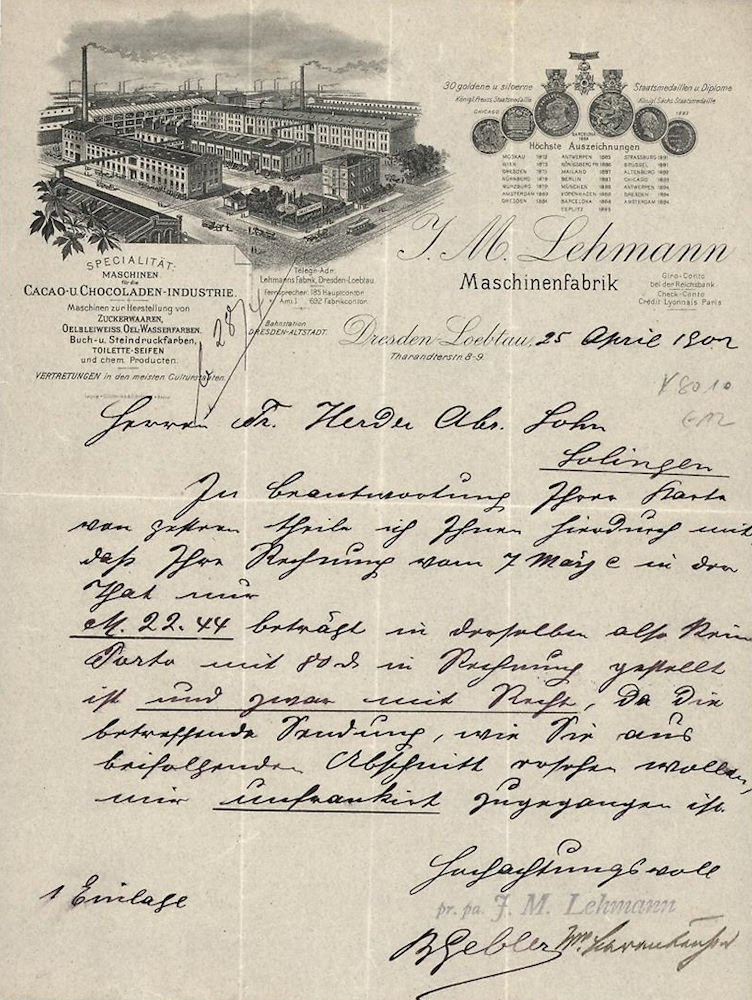 30 goldene u. silberne
Staatsmedaillen u. Diplome
Königl. Preuss. Staatsmedaille
Königl. Sächs. Staatsmedaille
CHICAGO
1893
BARCELONA
1888
Höchste Auszeichnungen
MOSKAU 1872 ANTWERPEN 1885 STRASSBURG 1891
WIEN 1873 KÖNIGSBERG PR 1885 BRÜSSEL 1891
DRESDEN 1875 MAILAND 1887 ALTENBURG 1892
NÜRNBERG BERLIN CHICAGO 1893
WÜRZBURG MÜNCHEN 1888 ANTWERPEN 1894
AMSTERDAM 1883 KOPENHAGEN 1888 DRESDEN 1894
DRESDEN 1884 BARCELONA 1888 AMSTERDAM
TEPLITZ
J. M. Lehmann
Maschinenfabrik
Giro-Conto
bei der Reichsbank
Check-Conto
Crédit Lyonnais Paris
SPECIALITÄT:
MASCHINEN
für die
CACAO- U. CHOCOLADEN-INDUSTRIE.
Maschinen zur Herstellung von
ZUCKERWAAREN,
OELBLEIWEISS, OEL-WASSERFARBEN,
Buch- u. Steindruckfarben,
TOILETTE-SEIFEN
und chem. Producten.
VERTRETUNGEN in den meisten Culturstaaten.
Telegr.-Adr.
Lehmanns Fabrik, Dresden-Loebtau.
Fernsprecher: 185 Hauptcontor
Amt I 692 Fabrikcontor.
Bahnstation
DRESDEN-ALTSTADT.
28/4
Dresden-Loebtau, 25 April 1902
Tharandterstr. 8-9.
8010
Herren Fr. Herder Abr. Sohn
Solingen
In Beantwortung Ihrer Karte
von gestern theile ich Ihnen hierdurch mit,
daß Ihre Rechnung vom 7 März c in der
That nur
M. 22.44 beträgt in derselben also kein
Porto mit 80 d in Rechnung gestellt
ist und zwar mit Recht, da die
betreffende Sendung, wie Sie aus
beifolgenden Abschnitt ersehen wollen,
mir unfrankirt zugegangen ist.
Hochachtungsvoll
1 Einlage
pr. pa. J. M. Lehmann
Gebler